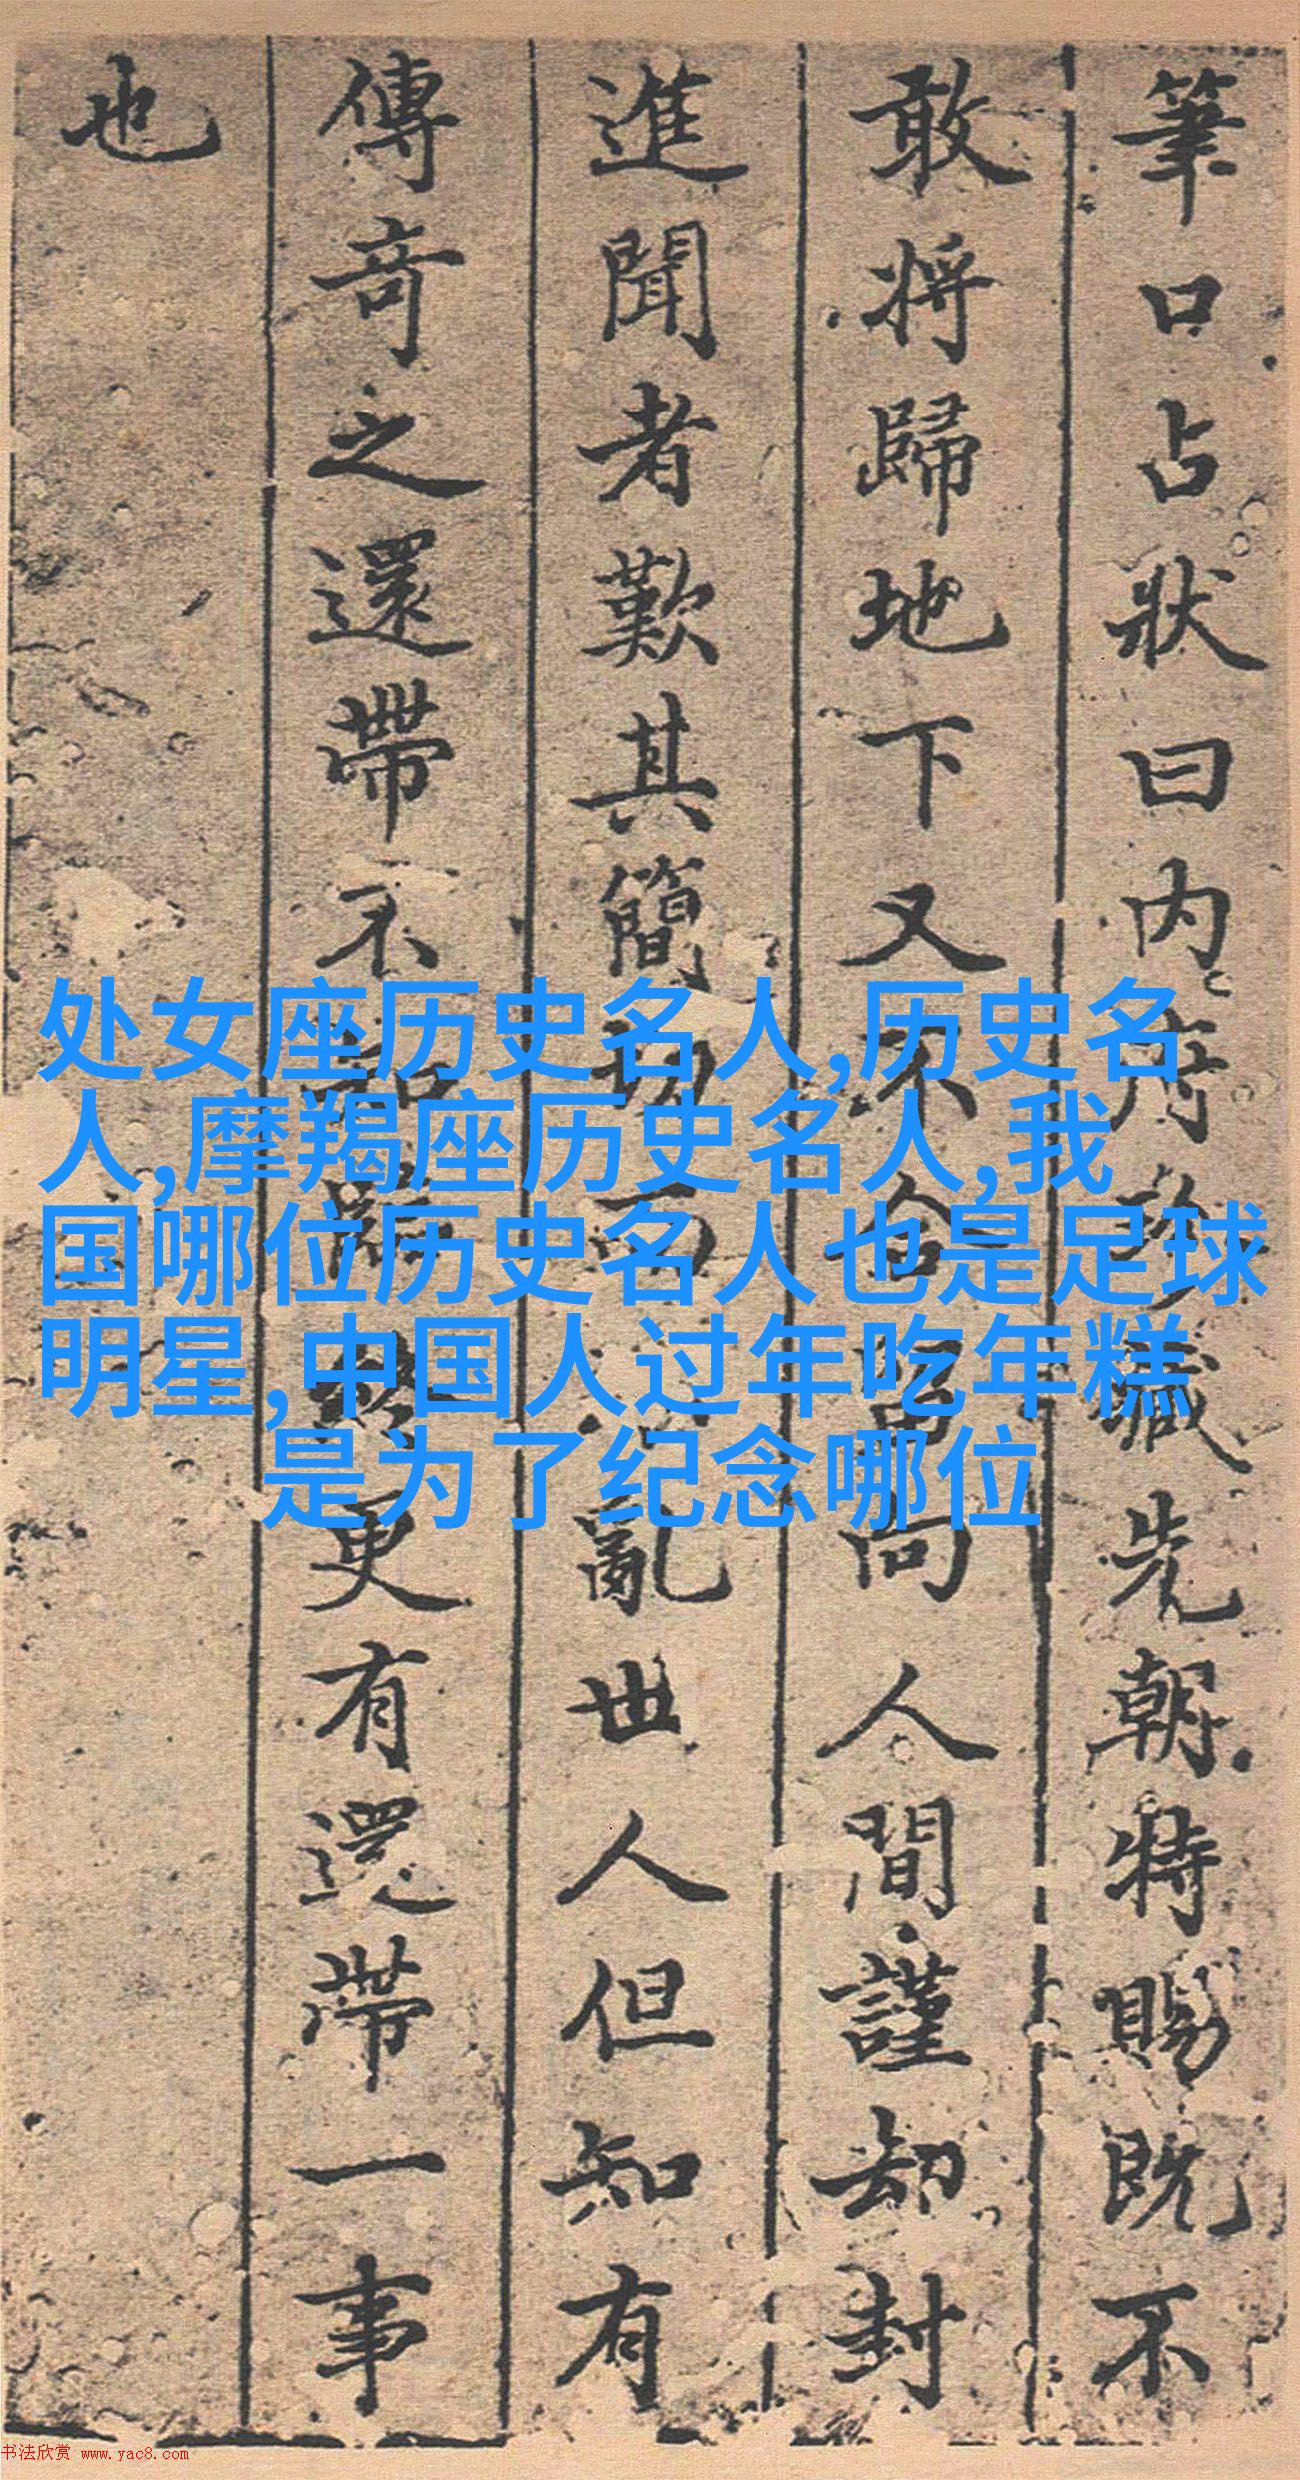 筆口占狀曰内府珍藏先朝特賜既不
敢将歸地下又不合留向人間謹却封
進聞者歎其簡切而不亂世人但知有
傳奇之還帶不更有還帶一事
也
处女座历史名人,历史名
人,摩羯座历史名人,我
国哪位历史名人也是足球
明星,中国人过年吃年糕
是为了纪念哪位
书法欣赏 www.yac8.com